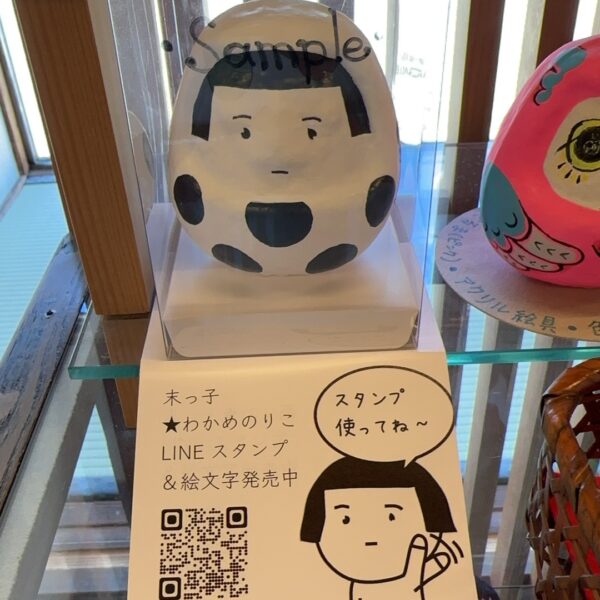 Sample
末っ子
★わかめのりこ
LINE スタンプ
＆絵文字発売中
スタンプ
使ってね～
アクリル絵具・